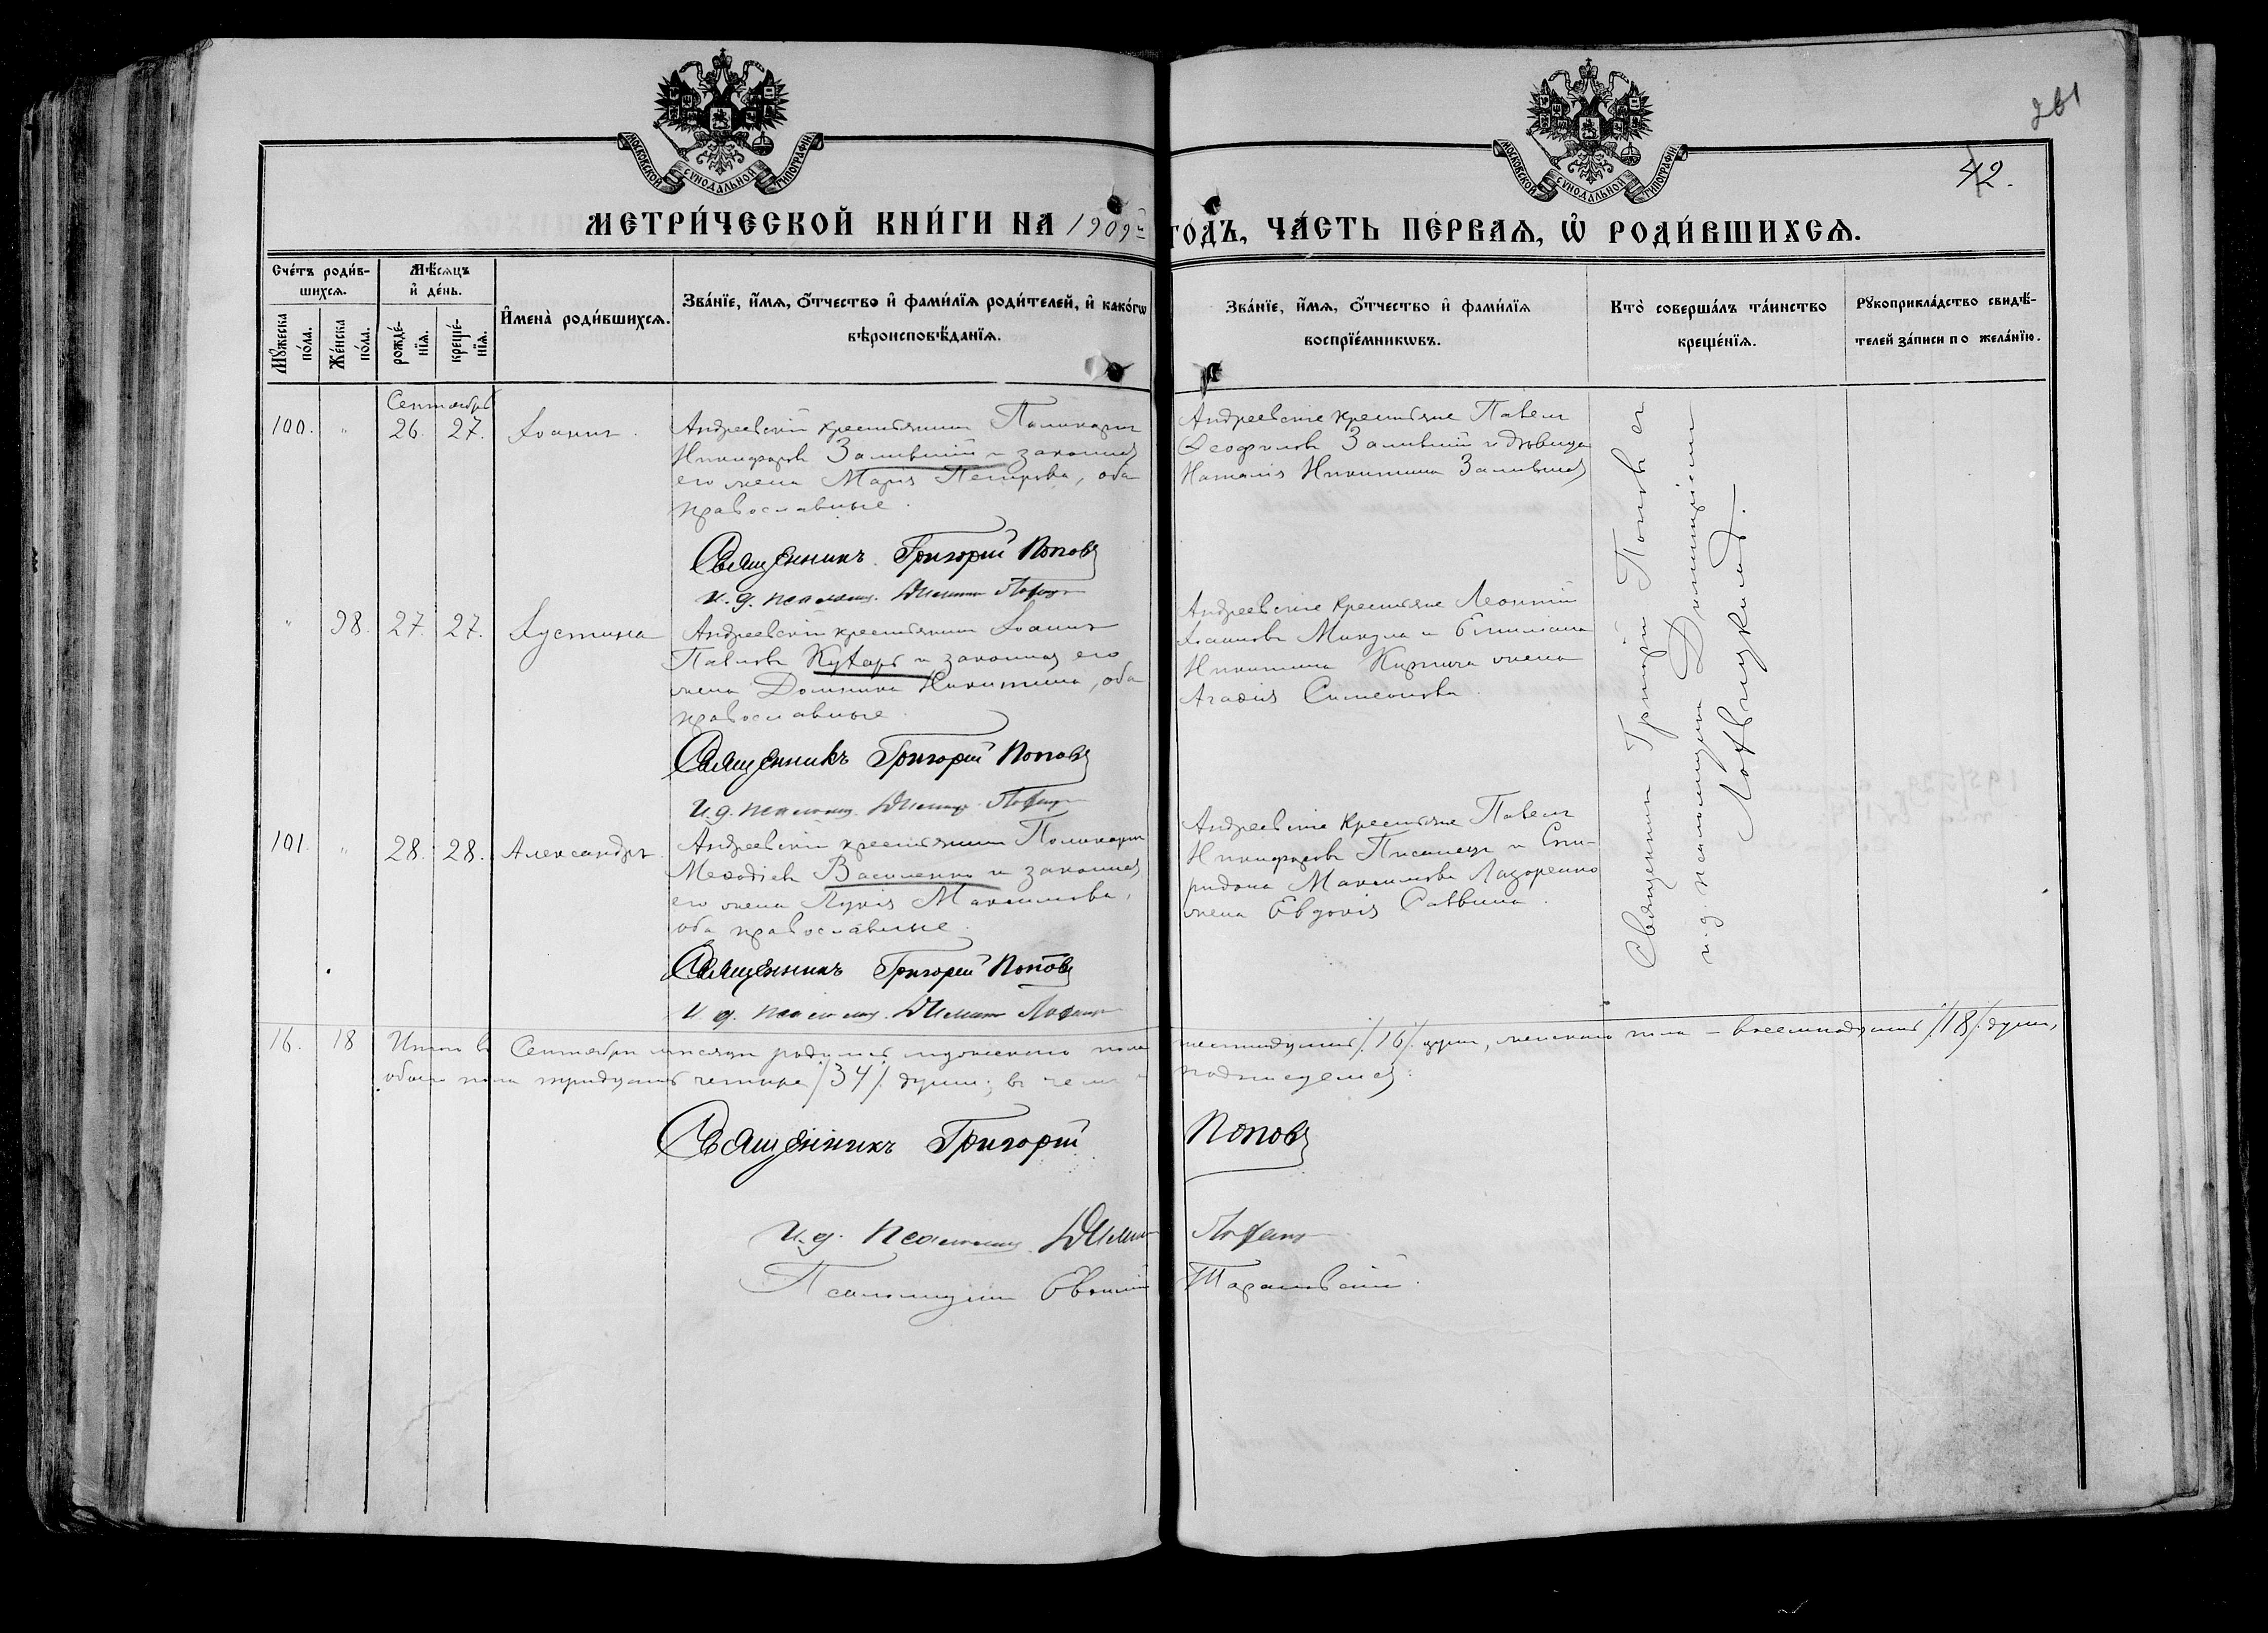 261
42.
МОСКОВСКОЙ СѴНОДАЛЬНОЙ ТИПОГРАФІИ
МОСКОВСКОЙ СѴНОДАЛЬНОЙ ТИПОГРАФІИ
МЕТРИ́ЧЕСКОЙ КНИ́ГИ НА 1909й ГОДЪ, ЧА́СТЬ ПЕ́РВАѦ, Ѽ РОДИ́ВШИХСѦ.
Сче́тъ роди́в-
шихсѧ.
Мꙋ́жеска
по́ла.
Же́нска
по́ла.
Мѣ́сѧцъ
и҆ де́нь.
рожде́-
нїѧ.
креще́-
нїѧ.
И҆мена̀ роди́вшихсѧ.
Зва́нїе, и҆́мѧ, ѻ҆́тчество и҆ фами́лїѧ роди́телей, и҆ како́гѡ
вѣроисповѣ́данїѧ.
Зва́нїе, и҆́мѧ, ѻ҆́тчество и҆ фами́лїѧ
воспрїе́мникѡвъ.
Кто̀ соверша́лъ та́инство
креще́нїѧ.
Рꙋкоприкла́дство свидѣ́-
телей за́писи по жела́нїю.
Сентябрь
100. " 26. 27. Іоаннъ.
Андреевскій крестьянинъ Поликарпъ
Никифоровъ Залившій и законная
его жена Марія Петрова, оба
православные.
Священникъ Григорій Поповъ
И. д. псаломщ.
Андреевскіе крестьяне Павелъ
Ѳеофиловъ Залившій и дѣвица
Наталія Никитина Залившая
" 98. 27. 27. Іустина
Андреевскій крестьянинъ Іоаннъ
Павловъ Кухарь и законная его
жена Домника Никитина, оба
православные.
Священникъ Григорій Поповъ
И. д. псаломщ.
Андреевскіе крестьяне Леонтій
Іоанновъ Микула и Емиліана
Никитина жена
Агаѳія Симеонова.
101. " 28. 28. Александръ.
Андреевскій крестьянинъ Поликарпъ
Меѳодіевъ Василенко и законная
его жена Лукія Максимова,
оба православные.
Священникъ Григорій Поповъ
И. д. псаломщ.
Андреевскіе крестьяне Павелъ
Никифоровъ Писанецъ и Спи-
ридона Максимова Лазоренко
жена Евдокія Саввина.
Священникъ Григорій Поповъ съ
и. д. псаломщика Димитріемъ
16. 18 Итого въ Сентябрѣ мѣсяцѣ родилось мужескаго пола шестнадцать /16/ душъ, женскаго пола – восемнадцать /18/ душъ,
обоего пола тридцать четыре /34/ души; въ чемъ и подписуемся:
Священникъ Григорій Поповъ
И. д. Псаломщ.
Псаломщикъ Евѳимій